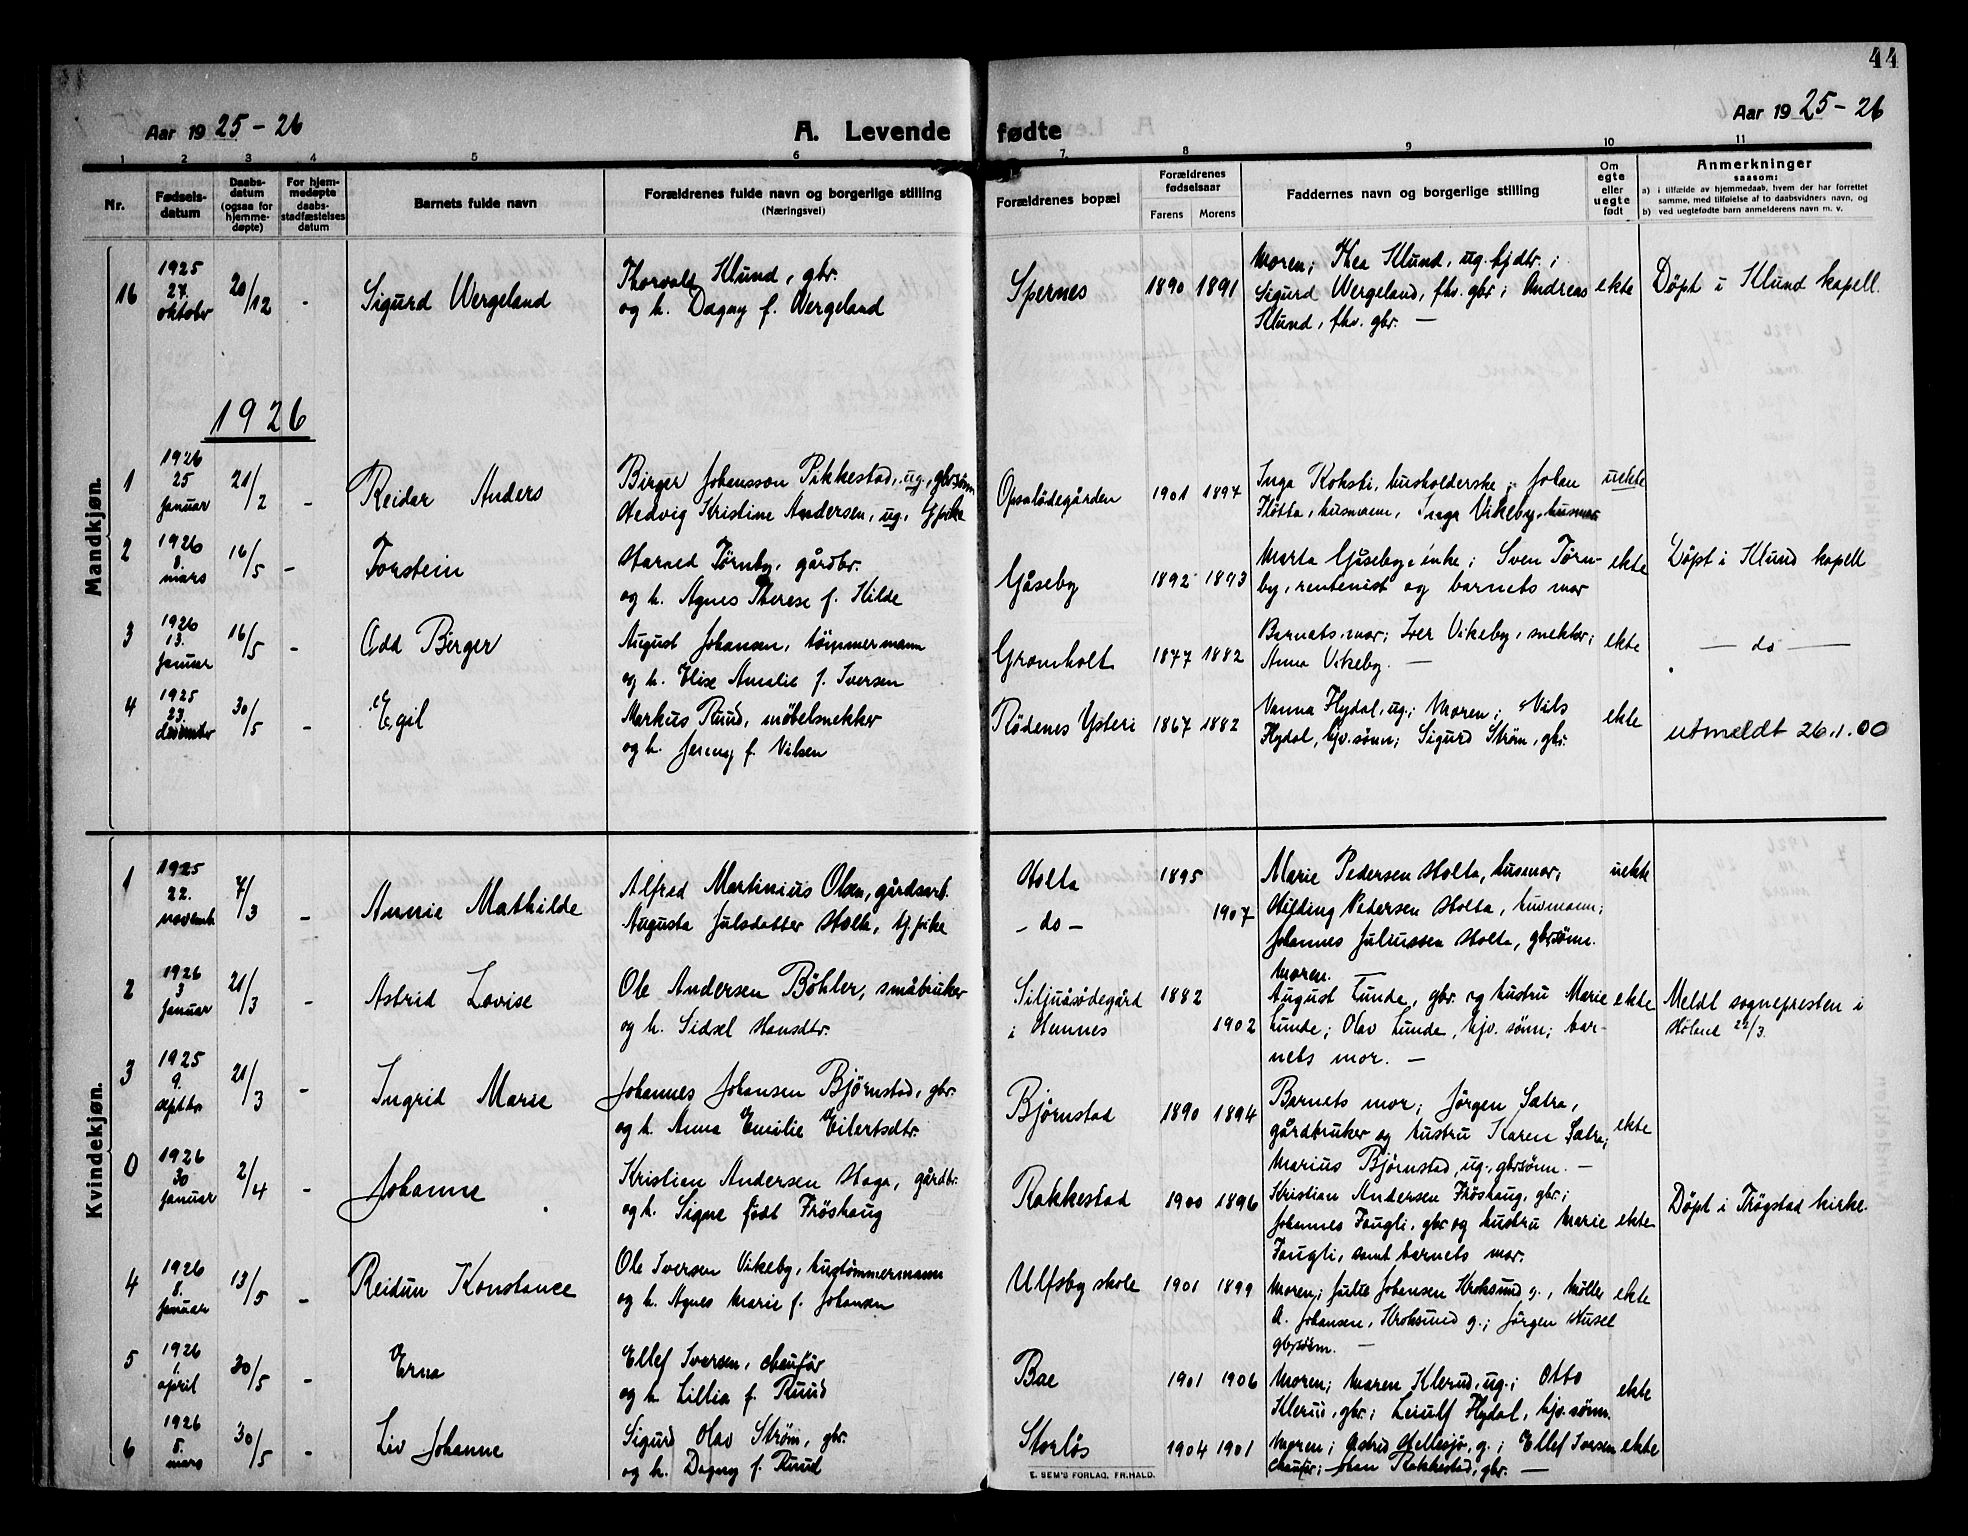 44
Aar 1925-26
A. Levende fødte
Aar 1925-26
1 2 3 4 5 6 7 8 9 10 11
Nr.
Fødsels-
datum
Daabs-
datum
(ogsaa for
hjemme-
døpte)
For hjem-
medøpte
daabs-
stadfæstelses
datum
Barnets fulde navn
Forældrenes fulde navn og borgerlige stilling
(Næringsvei)
Forældrenes bopæl
Forældrenes
fødselsaar
Farens Morens
Faddernes navn og borgerlige stilling
Om
egte
eller
uegte
født
Anmerkninger
saasom:
a) i tilfælde av hjemmedaab, hvem der har forrettet
samme, med tilføielse af to daabsvidners navn, og
b) ved uegtefødte barn anmelderens navn m. v.
Mandkjøn.
16 1925 27. oktobr 20/12 - Sigurd Wergeland
Thorvald Klund, gbr.
og h. Dagny f. Wergeland
Spernes 1890 1891
Moren; Thea Klund, ug. hjdtr.;
Sigurd Wergeland, fhv. gbr; Andreas
Klund, fhv. gbr. —
ekte Døpt i Klund kapell.
1926
1 1926 25 januar 21/2 - Reidar Anders
Birger Johansson Pikkestad, ug., gbrsønn
Hedvig Kristine Andersen, ug.
Opsalødegården 1901 1897
Inga husholderske; Johan
husmann, Inga Vikeby, husmor
uekte
2 1926 8. mars 16/5 - Torstein
Harned Tørnby, gårdbr.
og h. Agnes Therese f. Hilde
Gåseby 1892 1893
Marta Gåseby, enke; Sven Tørn-
by, rentenist og barnets mor
ekte Døpt i Klund kapell
3 1926 13. januar 16/5 - Odd Birger
August Johansen, tømmermann
og h. Elise Amalie f. Iversen
Gromholt 1877 1882
Barnets mor; Iver Vikeby, snekker;
Anna Vikeby. —
ekte — do —
4 1925 23. desember 30/5 - Egil
Markus Ruud, møbelsnekker
og h. Jenny f. Nilsen
Rødenes Ysteri 1867 1882
Nanna Flydal, ug.; Moren; Nils
Flydal, hjv. sønn; Sigurd Strøm, gbr.
ekte utmeldt 26.1.00
Kvindekjøn.
1 1925 22. novemb 7/3 - Annie Mathilde
Alfred Martinius Olsen, gårdsarb.
Augusta Julsdatter Holta, tj. pike
Holta 1895
- do - 1907
Marie Pedersen Holta, husmor;
Hilding Pedersen Holta, husmann;
Johannes Juliussen Holta, gbrsønn.
Moren. —
uekte
2 1926 3 januar 21/3 - Astrid Lovise
Ole Andersen Bøhler, småbruker
og h. Sidsel Hansdtr.
Siljuåsødegård 1882
i Hennes 1902
August Lunde, gbr. og hustru Marie
Lunde; Olav Lunde, hjv. sønn; bar-
nets mor. —
ekte Meldt sognepresten i
Høland 22/3.
3 1925 9. septbr 21/3 - Ingrid Marie
Johannes Johansen Bjørnstad, gbr.
og h. Anna Emilie Eilertsdtr.
Bjørnstad 1890 1894
Barnets mor; Jørgen Sætra,
gårdbruker og hustru Karen Sætra;
Marius Bjørnstad, ug., gbrsønn. —
ekte
0 1926 30 januar 2/4 - Johanne
Kristian Andersen Haga, gårdbr.
og h. Signe født Frøshaug
Rakkestad 1900 1896
Kristian Andersen Frøshaug, gbr;
Johannes Fougli, gbr og hustru Marie
Fougli, samt barnets mor.
ekte Døpt i Trøgstad kirke.
4 1926 8. januar 13/5 - Reidun Konstance
Ole Iversen Vikeby, hustømmermann
og h. Agnes Marie f. Johansen
Ulfsby skole 1901 1899
Moren; Julie Johansen Kroksund g., Møller
A. Johansen, Kroksund g.; Jørgen Husel
gbrsønn. —
ekte
5 1926 1. april 30/5 - Erna
Ellef Iversen, chaufør
og h. Lillia f. Ruud
Bae 1901 1906
Moren; Maren Klerud, ug.; Otto
Klerud, gbr; Leiulf Flydal, hjv. sønn.
ekte
6 1926 5. mars 30/5 - Liv Johanne
Sigurd Olav Strøm, gbr.
og h. Dagny f. Ruud
Storløs 1904 1901
Moren; Astrid Hellesjø, g.; Ellef Iversen
chaufør; Johan Rakkestad, gbr. —
ekte
E. SEM'S FORLAG, FR.HALD.